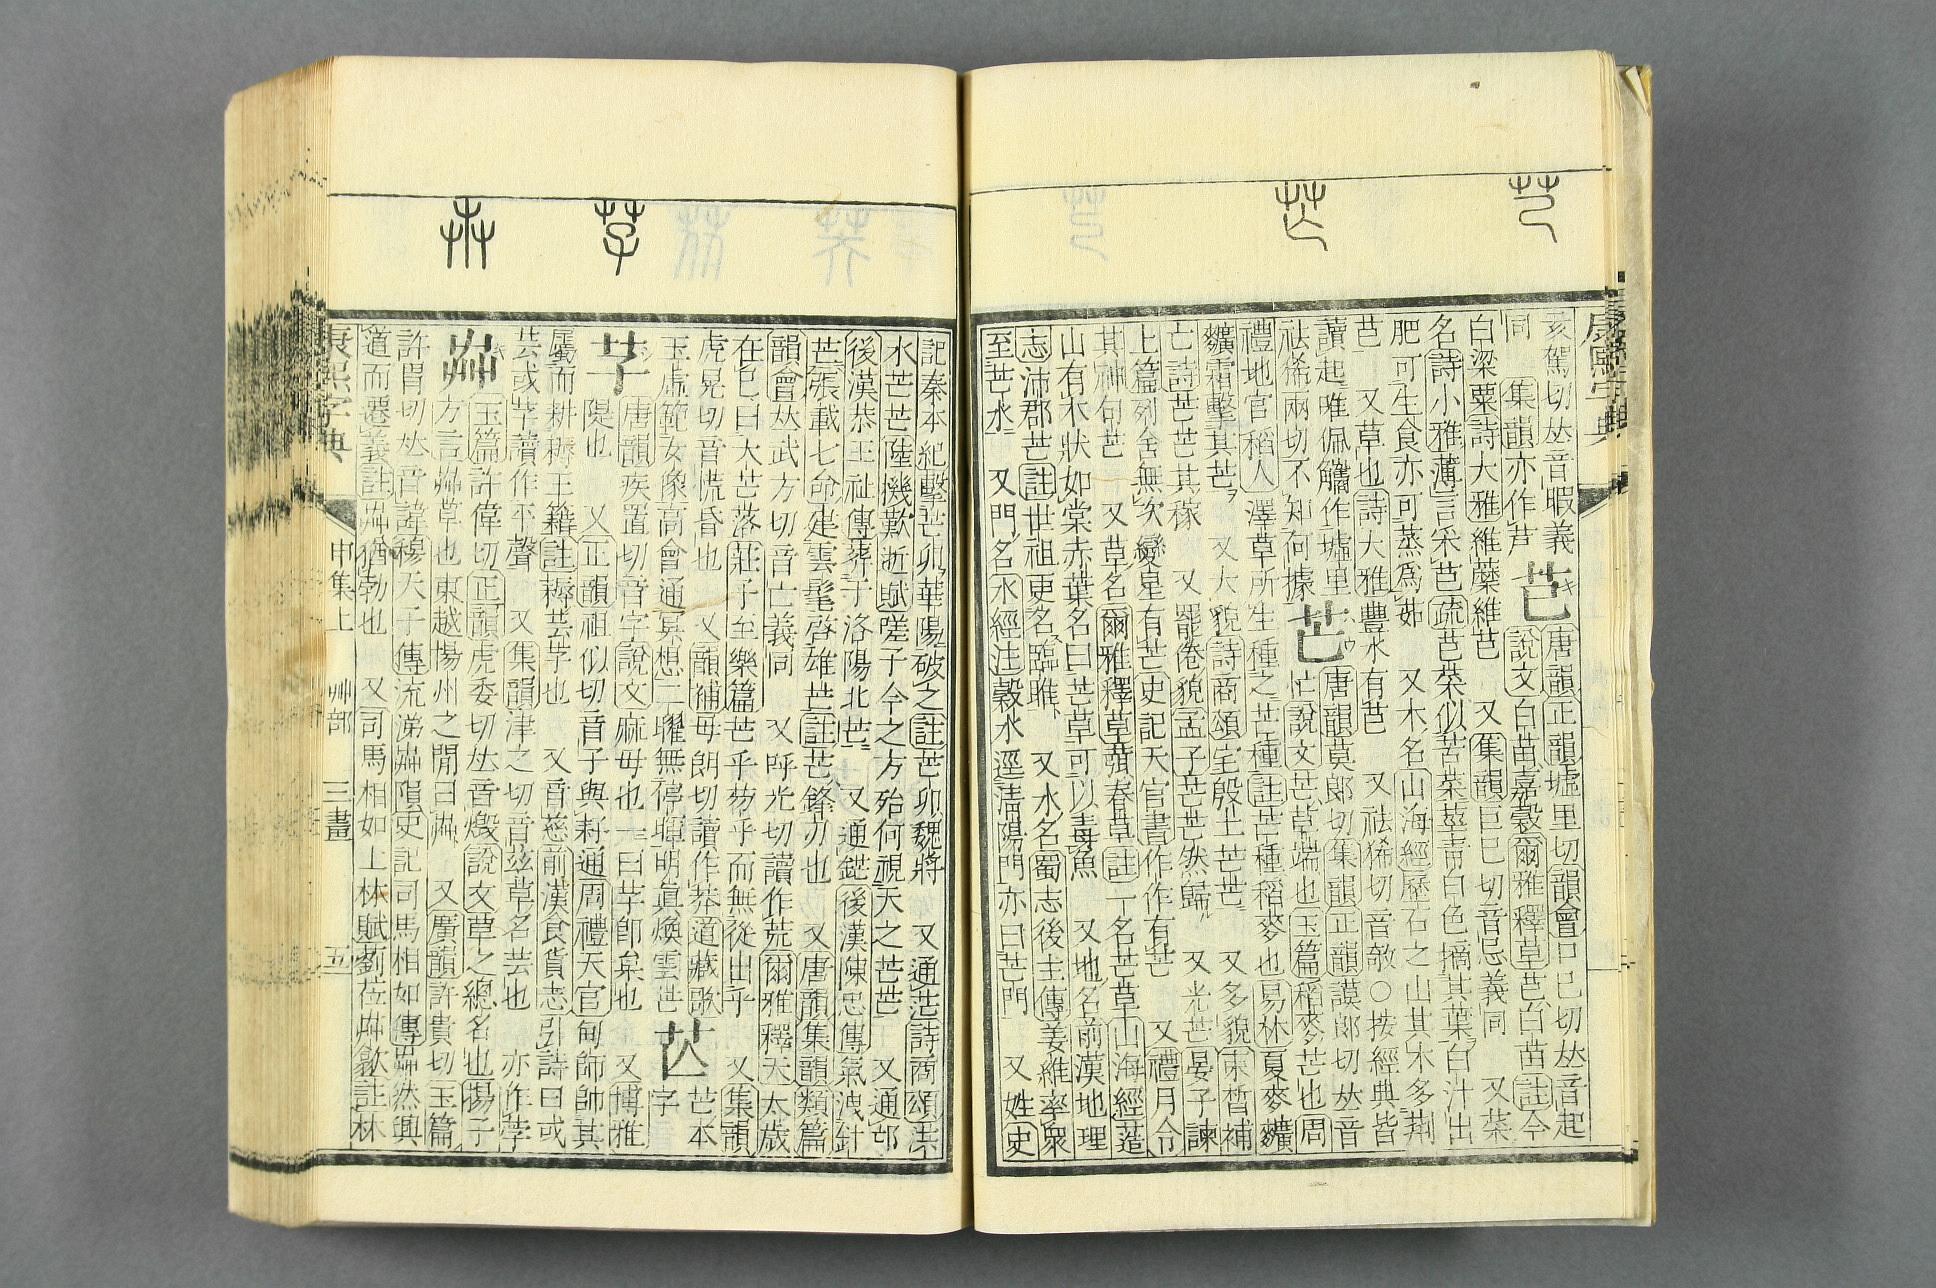 芑
芒
亥駕切𠀤音暇義
同 集韻亦作芦 芑 唐韻正韻墟里切韻會口已切𠀤音起
說文白苗嘉穀爾雅釋草芑白苗註今
白粱粟詩大雅維虋維芑 又集韻巨已切音忌義同 又菜
名詩小雅薄言采芑疏芑菜似苦菜莖靑白色摘其葉白汁出
肥可生食亦可蒸爲茹 又木名山海經歷石之山其木多荆
芑 又草也詩大雅豐水有芑 又祛狶切音敧○按經典皆
讀起唯佩觿作墟里
祛狶兩切不知何據 芒 唐韻莫郞切集韻正韻謨郞切𠀤音
忙說文芒草端也玉篇稻麥芒也周
禮地官稻人澤草所生種之芒種註芒種稻麥也易林夏麥䵃
䵃霜擊其芒 又大貌詩商頌宅殷土芒芒 又多貌束晳補
亡詩芒芒其稼 又罷倦貌孟子芒芒然歸 又光芒晏子諫
上篇列舍無次變星有芒史記天官書作作有芒 又禮月令
其神句芒 又草名爾雅釋草莣春草註一名芒草山海經葌
山有木狀如棠赤葉名曰芒草可以毒魚 又地名前漢地理
志沛郡芒註世祖更名臨睢 又水名蜀志後主傳姜維率衆
至芒水 又門名水經注穀水逕淸陽門亦曰芒門 又姓史
芓
芔
記秦本紀擊芒卯華陽破之註芒卯魏將 又通茫詩商頌洪
水芒芒陸機歎逝賦嗟予今之方殆何視天之芒芒 又通邙
後漢恭王祉傳葬于洛陽北芒 又通鋩後漢陳忠傳氣洩針
芒張載七命建雲髦啓雄芒註芒鋒刃也 又唐韻集韻類篇
韻會𠀤武方切音亡義同 又呼光切讀作荒爾雅釋天太歲
在巳曰大芒落莊子至樂篇芒乎芴乎而無從出乎 又集韻
虎晃切音慌昏也 又韻補母朗切讀作莽道藏歌
玉虛範女像高會通冥想二曜無停暉明眞煥雲芒 𦬆 芒本
字
芓 唐韻疾置切音字說文麻母也一曰芓卽枲也 又博雅
隄也 又正韻祖似切音子與耔通周禮天官甸師師其
屬而耕耨王籍註耨芸芓也 又音慈前漢食貨志引詩曰或
芸或芓讀作平聲 又集韻津之切音玆草名芸也 亦作荢
芔 玉篇許偉切正韻虎委切𠀤音燬說文草之總名也揚子
方言芔草也東越揚州之閒曰芔 又廣韻許貴切玉篇
許胃切𠀤音諱穆天子傳流涕芔隕史記司馬相如傳芔然興
道而遷義註芔猶勃也 又司馬相如上林賦藰莅芔歙註林
康熙字典 申集上 艸部 三畫 五
康熙字典